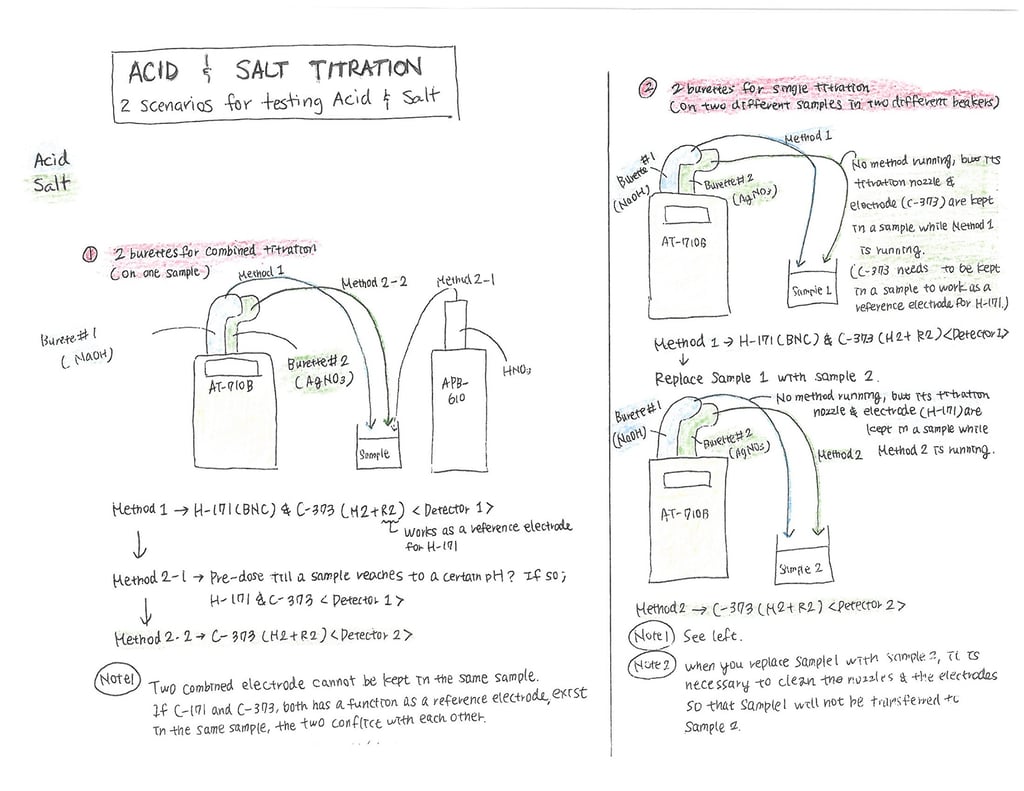 ACID & SALT TITRATION
2 scenarios for testing Acid & Salt
Acid
Salt
① 2 burettes for combined titration
(on one sample)
Method 1
Method 2-2
Method 2-1
Burete #1
(NaOH)
Burette #2
(AgNO3)
AT-710B
APB-
610
HNO3
Sample
Method 1 → H-171 (BNC) & C-373 (M2+R2) <Detector 1>
works as a reference electrode
for H-171
Method 2-1 → Pre-dose till a sample reaches to a certain pH? If so;
H-171 & C-373 <Detector 1>
Method 2-2 → C-373 (M2+R2) <Detector 2>
Note1
Two combined electrode cannot be kept in the same sample.
If C-171 and C-373, both has a function as a reference electrode, exist
in the same sample, the two conflict with each other.
② 2 burettes for single titration
(on two different samples in two different beakers)
Method 1
Burette #1
(NaOH)
Burette #2
(AgNO3)
AT-710B
Sample 1
No method running, but its
titration nozzle &
electrode (C-373) are kept
in a sample while Method 1
is running.
(C-373 needs to be kept
in a sample to work as a
reference electrode for H-171.)
Method 1 → H-171 (BNC) & C-373 (M2+R2) <Detector 1>
↓
Replace Sample 1 with sample 2.
No method running, but its titration
nozzle & electrode (H-171) are
kept in a sample while
Method 2 is running.
Burette #1
(NaOH)
Burette #2
(AgNO3)
Method 2
AT-710B
Sample 2
Method 2 → C-373 (M2+R2) <Detector 2>
Note1 See left.
Note 2 when you replace sample1 with sample 2, it is
necessary to clean the nozzles & the electrodes
so that sample1 will not be transferred to
Sample 2.